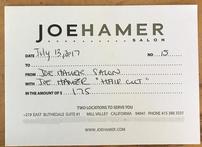 JOEHAMER
SALON
DATE July 13, 2017 NO 15
TO
FROM JOE HAMER SALON
FOR JOE HAMER "HAIR CUT"
IN THE AMOUNT OF $ 175
TWO LOCATIONS TO SERVE YOU
EAST BLITHEDALE SUITE MILL VALLEY CALIFORNIA 94941 PHONE 415
WWW.JOEHAMER.COM